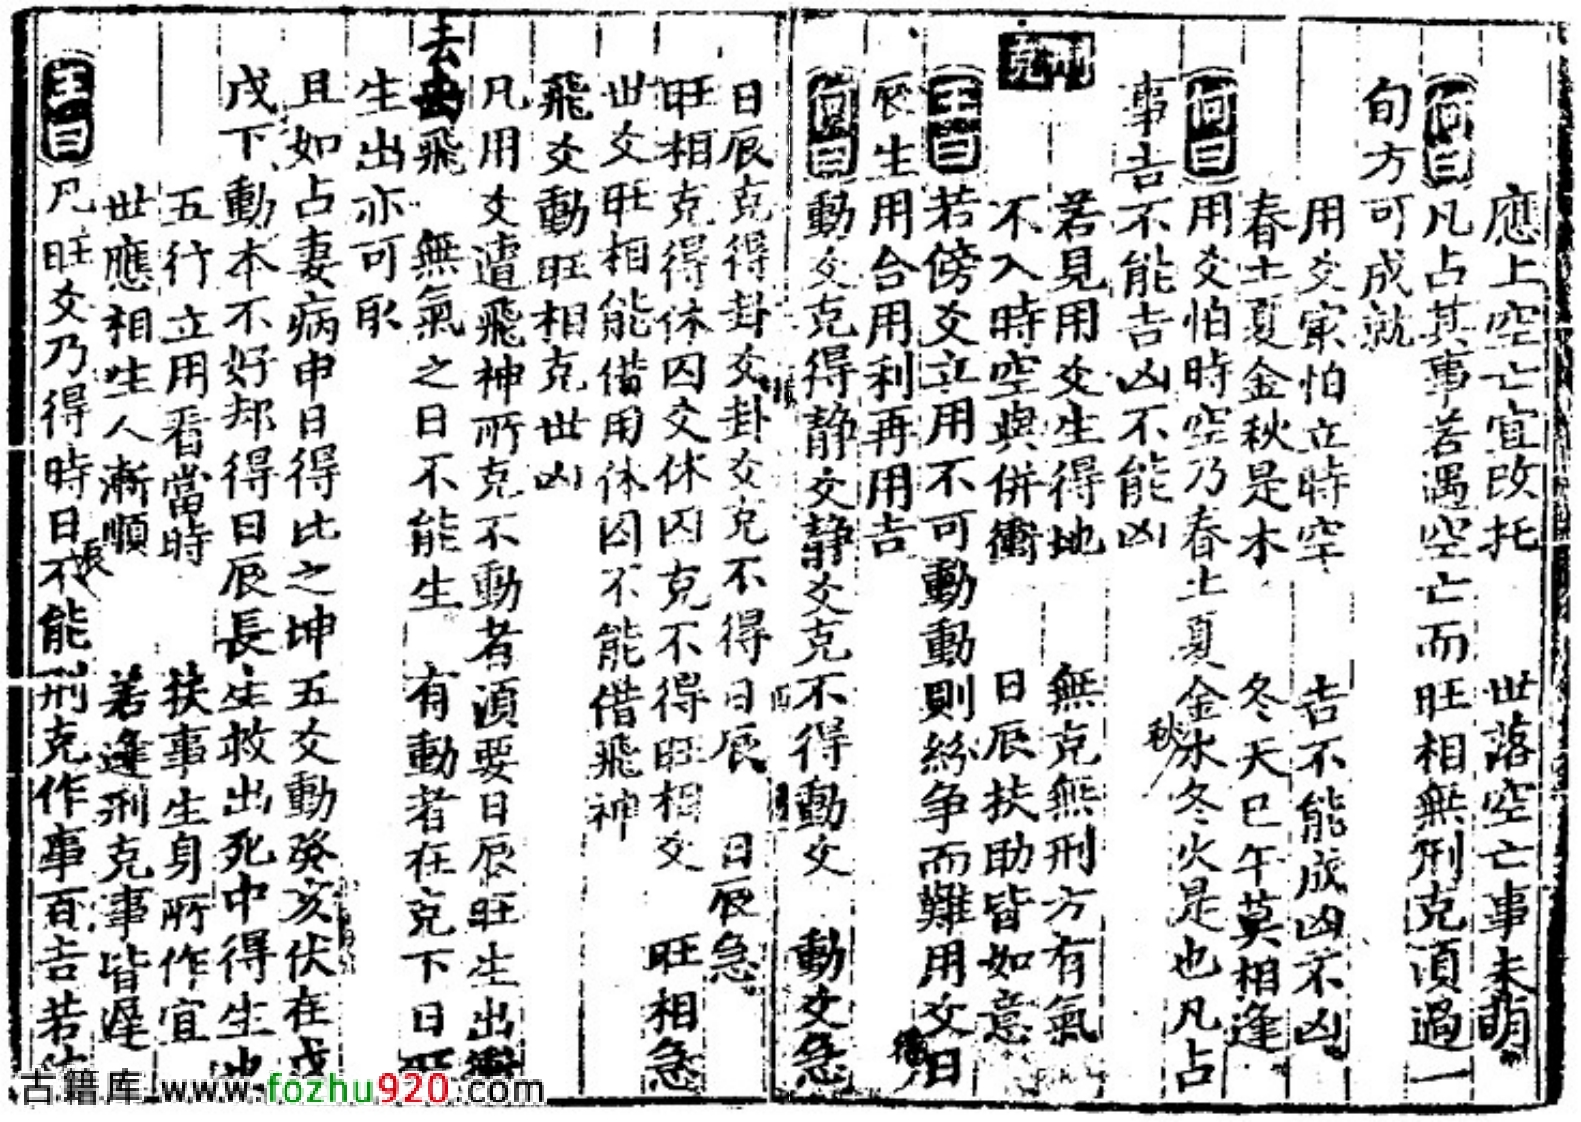 應上空亡宜改托 世落空亡事未萌
何曰凡占其事若遇空亡而旺相無刑克須過一
旬方可成就
用爻家怕立時空 吉不能成凶不凶
春土夏金秋是木 冬天巳午莫相逢
何曰用爻怕時空乃春土夏金秋木冬火是也凡占
事吉不能吉凶不能凶
刑克
若見用爻生得地 無克無刑方有氣
不入時空與併衝 日辰扶助皆如意
王曰若傍爻立用不可動動則紛争而難用爻日
辰生用合用利再用吉
何曰動爻克得静爻静爻克不得動爻 動爻急
日辰克得卦爻卦爻克不得日辰 日辰急
旺相克得休囚爻休囚克不得旺相爻 旺相急
世爻旺相能借用休囚不能借飛神
飛爻動旺相克世凶
凡用爻遭飛神所克不動者須要日辰旺生出
去飛 無氣之日不能生 有動者在克下日
生出亦可取
且如占妻病申日得比之坤五爻動癸亥伏在戊
戌下動本不好却得日辰長生救出死中得生也
五行立用看當時 扶事生身所作宜
世應相生人漸順 若逢刑克事皆遲
王曰凡旺爻乃得時日辰不能刑克作事百吉若
古籍库 www.fozhu920.com